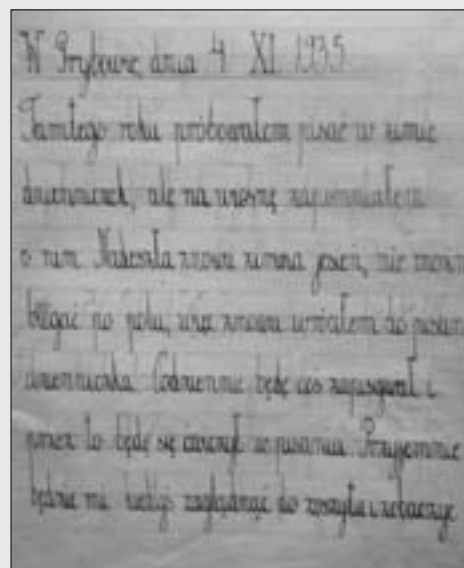 W Grybowie, dnia 4 XI 1935
Tamtego roku próbowałem pisać w zimie
dzienniczek, ale na wiosnę zapomniałem
o nim. Nadeszła znowu zimna jesień, nie można
biegać po polu, więc znowu wziąłem do pisania
dzienniczka. Codziennie będę coś zapisywał i
przez to będę się ćwiczył w pisaniu. Przyjemnie
będzie mi kiedyś zaglądnąć do zeszytu i zobaczyć